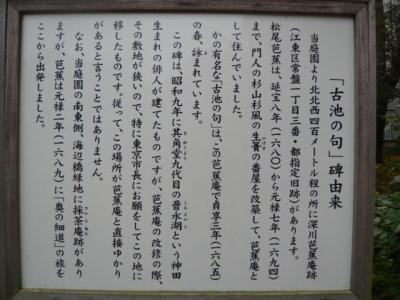 「古池の句」碑由来
当庭園より北北西四百メートル程の所に深川芭蕉庵跡
(江東区常盤一丁目三番・都指定旧跡)があります。
松尾芭蕉は、延宝八年(一六八〇)から元禄七年(一六九四)
まで、門人の杉山杉風の生簀の番屋を改築して、芭蕉庵と
して住んでいました。
かの有名な「古池の句」は、この芭蕉庵で貞享三年(一六八五)
の春、詠まれています。
この碑は、昭和九年に其角堂九代目の晋永湖という神田
生まれの俳人が建てたものですが、芭蕉庵の改修の際、
その敷地が狭いので、特に東京市長にお願をしてこの地に
移したものです。従って、この場所が芭蕉庵と直接ゆかり
があると言うことではありません。
なお、当庭園の南東側、海辺橋緑地に採茶庵跡があり
ますが、芭蕉は元禄二年(一六八九)に「奥の細道」の旅を
ここから出発しました。